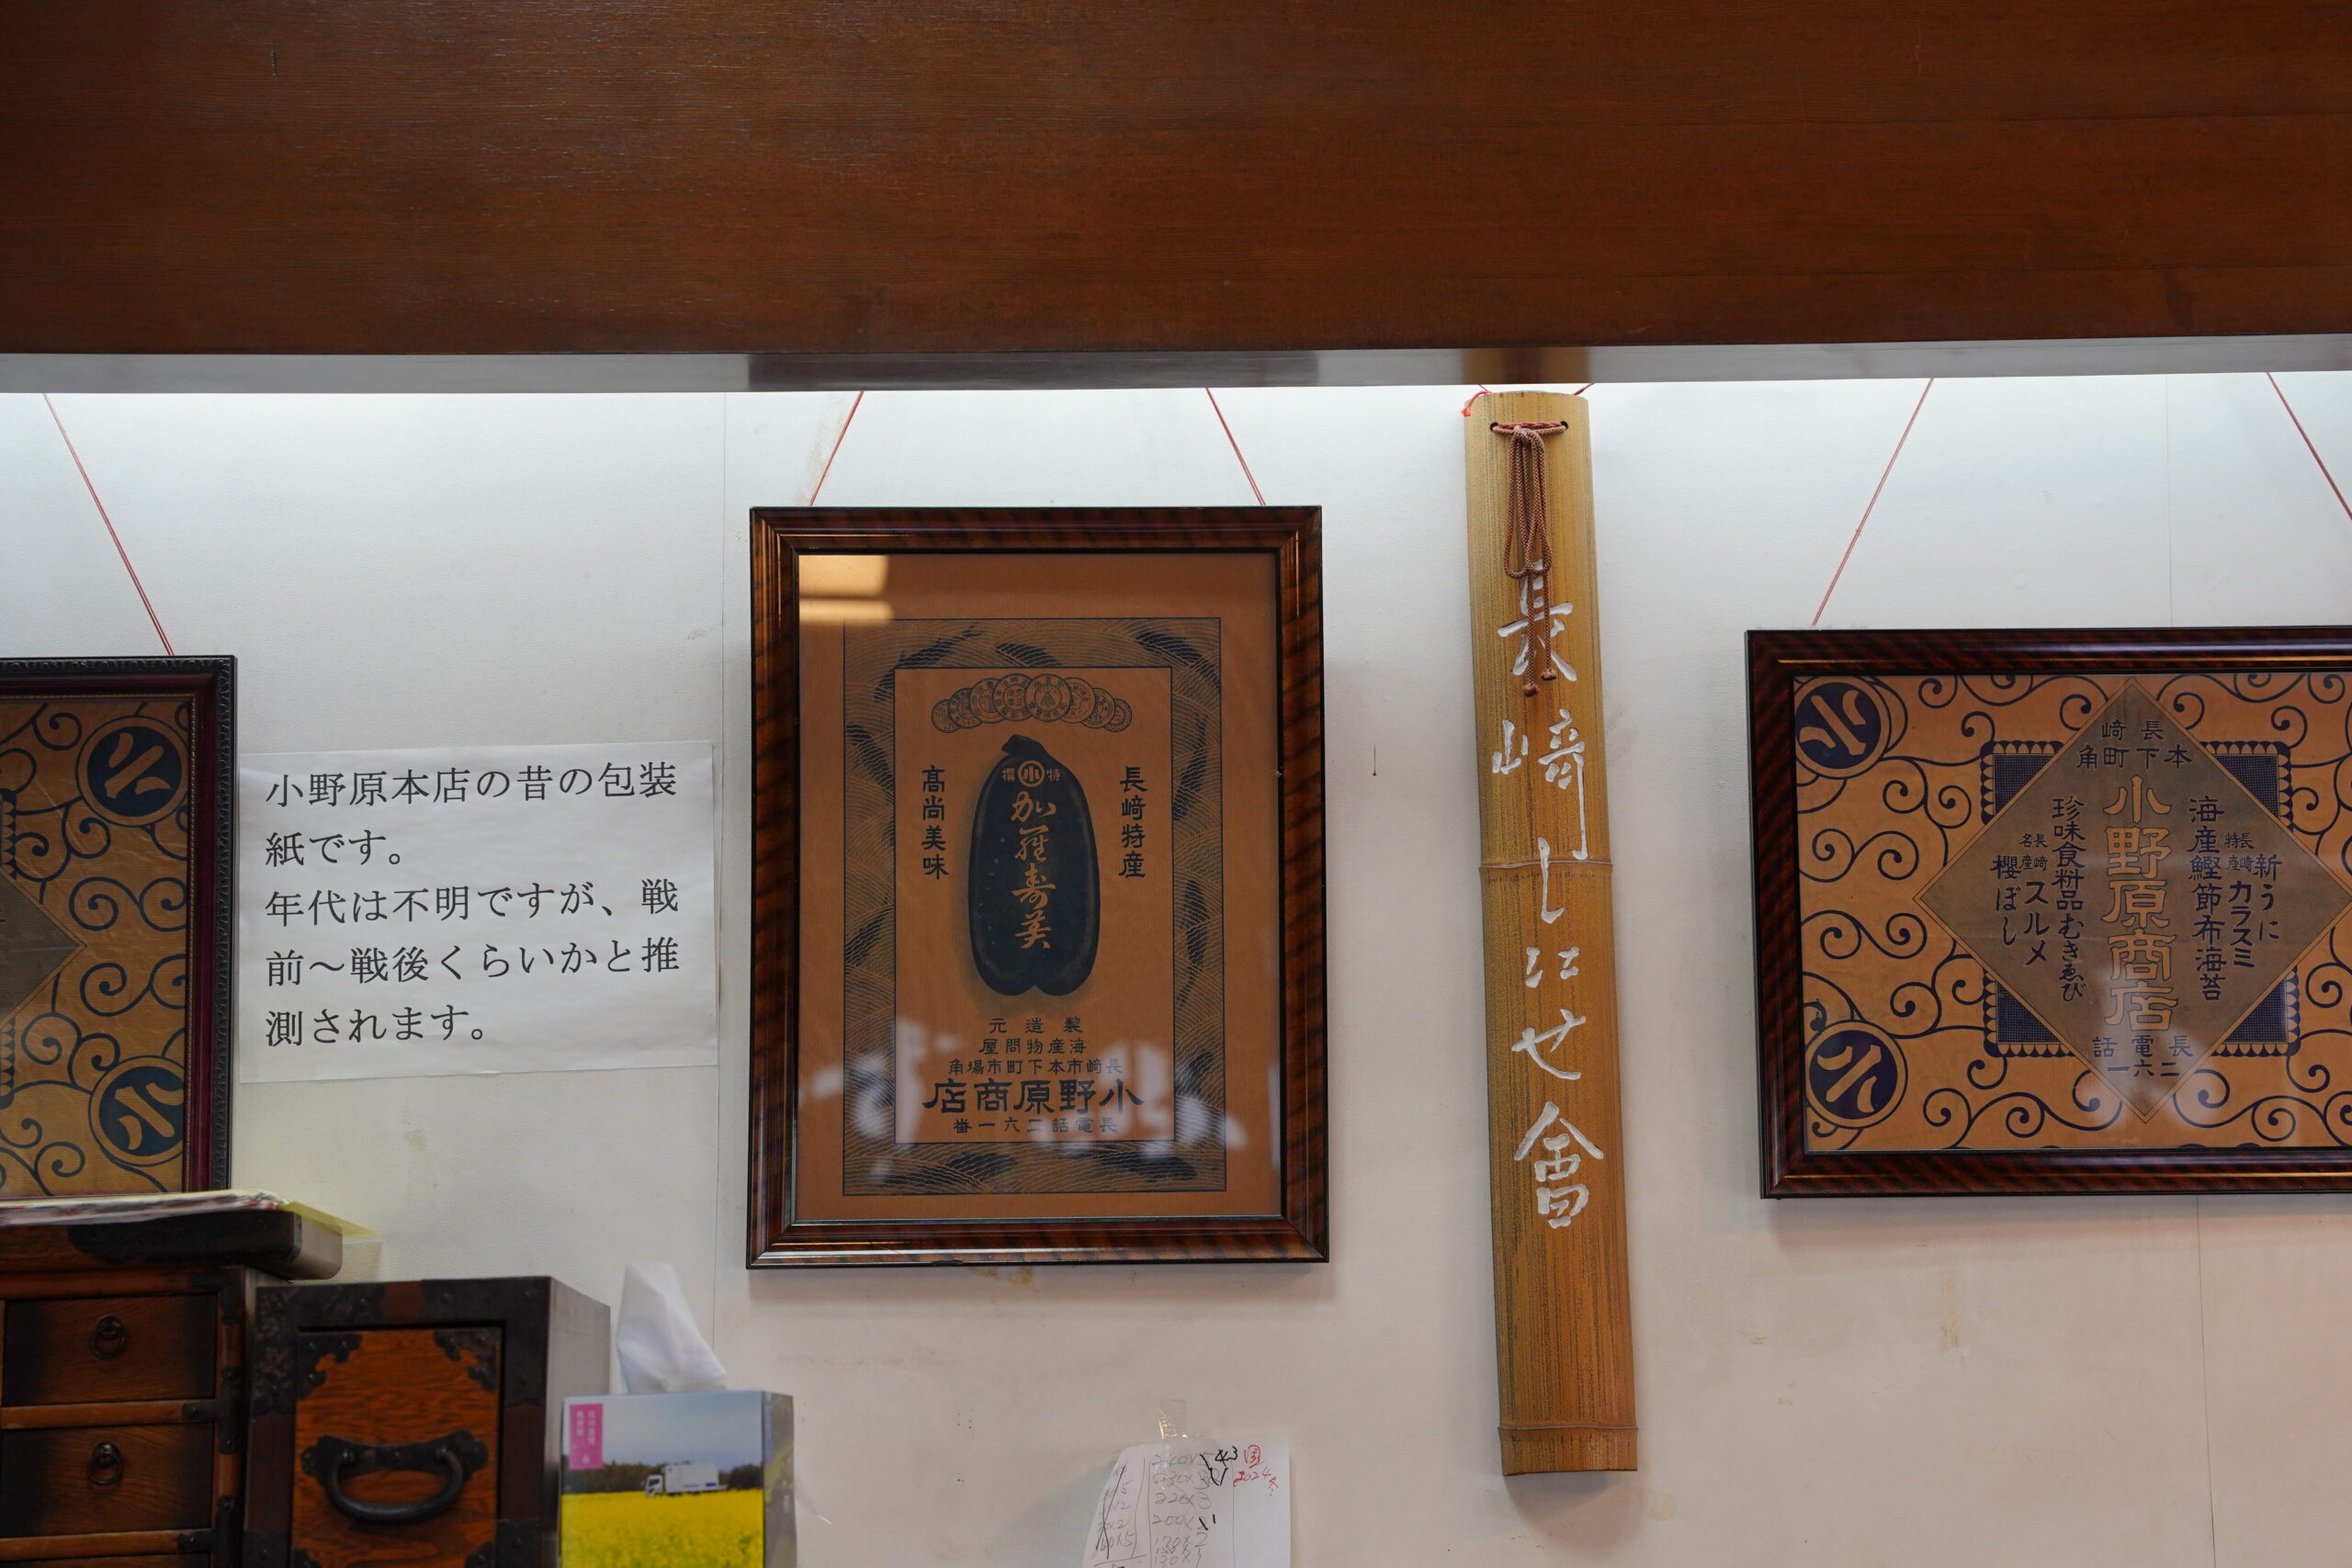 小野原本店の昔の包装
紙です。
年代は不明ですが、戦
前〜戦後くらいかと推
測されます。
小
小
長﨑特産
特小撰
加羅寿美
高尚美味
製造元
海産物問屋
長﨑市本下町市場角
小野原商店
長電話二六一番
長﨑しにせ會
小
小
長﨑
本下町角
新うに
長﨑特産カラスミ
海産鰹節布海苔
小野原商店
珍味食料品むきゑび
長﨑名産スルメ
櫻ぼし
長電話
二六一